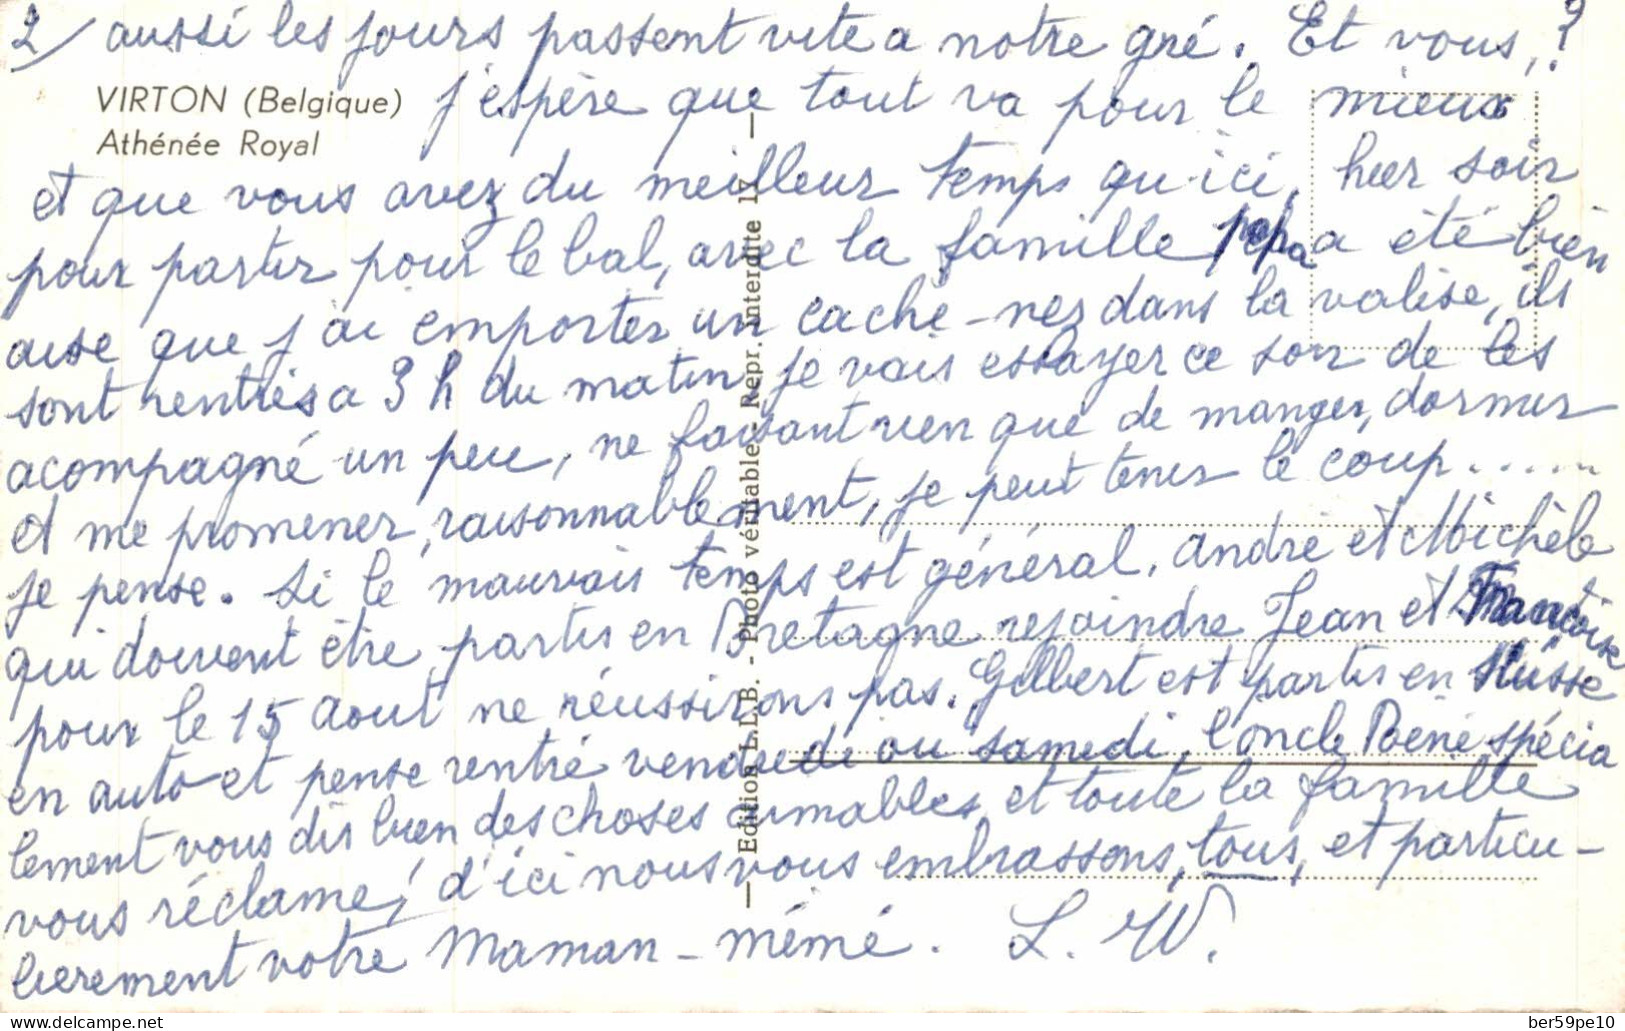 2/ aussi les jours passent vite a notre gré. Et vous, ?
VIRTON (Belgique)
Athénée Royal
j'espère que tout va pour le mieux
et que vous avez du meilleur temps qu'ici, hier soir
pour partir pour le bal, avec la famille papa a été bien
aise que j'ai emporter un cache-nez dans la valise, ils
sont rentrés a 3 h du matin, je vais essayer ce soir de les
acompagné un peu, ne faisant rien que de manger, dormir
et me promener, raisonnablement, je peut tenir le coup......
je pense. Si le mauvais temps est général. André et Michèle
qui doivent être partis en Bretagne rejoindre Jean et Françoise
pour le 15 aout ne réussirons pas. Gilbert est partis en Suisse
en auto et pense rentré vendredi ou samedi, l'oncle René spécia
lement vous dis bien des choses aimables, et toute la famille
vous réclame, d'ici nous vous embrassons, tous, et particu-
lierement votre Maman-mémé. L. W.
Edition L.L.B. - Photo véritable - Repr. interdite 17
ber59pe10